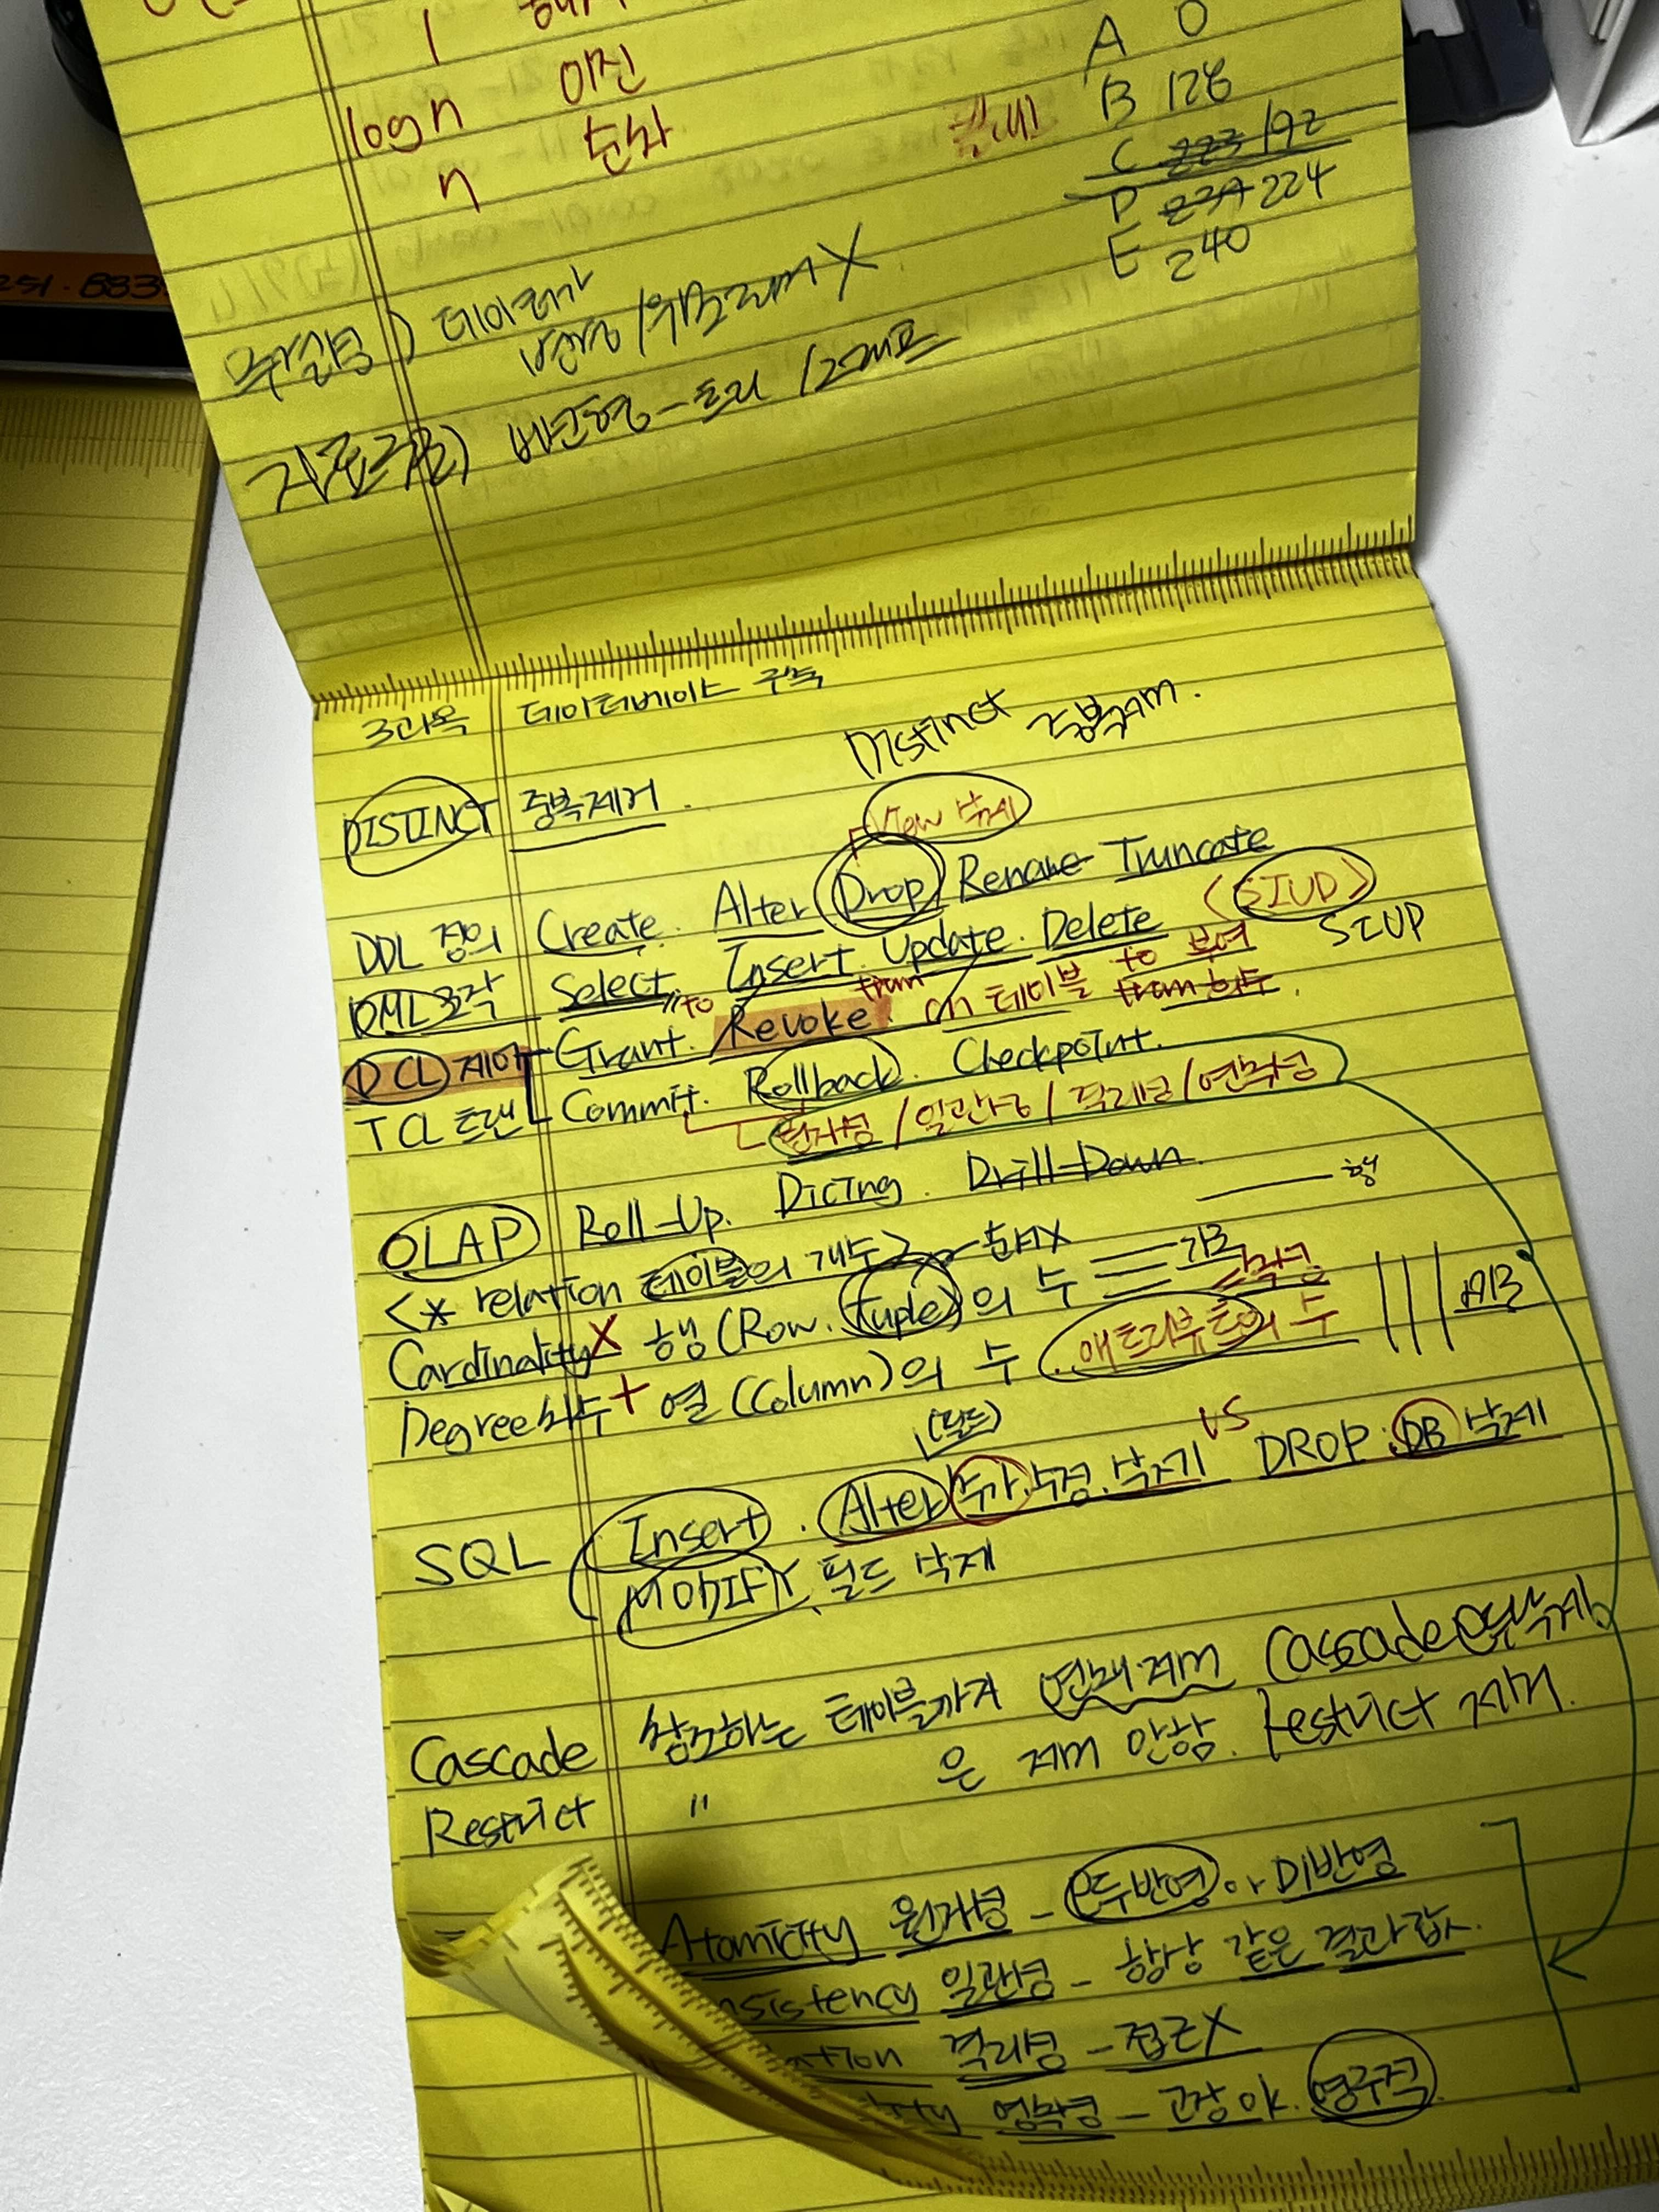 1
log n 이진
n 순차
A 0
B 128
C 223 192
D 234 224
E 240
무결성) 데이터가
변형/위조되면 X
3과목 데이터베이스 구축
Distinct 중복제거.
DISTINCT 중복제거.
View 삭제
DDL 정의 Create. Alter Drop, Rename Truncate
<SIUD>
DML 조작 Select, Insert. Update. Delete SIUD
to from on 테이블 to 부여
from 회수.
DCL 제어 Grant. Revoke.
TCL 트랜 Commit. Rollback. Checkpoint.
원자성/일관성/격리성/영속성
OLAP Roll-Up. Dicing. Drill-Down.
행
<* relation 테이블의 개수> 순서X
Cardinality X 행(Row. tuple)의 수 가로
Degree 차수 + 열(Column)의 수 애트리뷰트의 수 세로
(필드)
SQL Insert. Alter 추가.수정.삭제 vs DROP:DB 삭제
MODIFY 필드 삭제
Cascade 참조하는 테이블까지 연쇄제거 Cascade
Restrict " 은 제거 안함. Restrict 제거.
Atomicity 원자성 - 모두반영 or 미반영
nsistency 일관성 - 항상 같은 결과값.
ation 격리성 - 접근X
ity 영속성 - 고장 나도 영구적